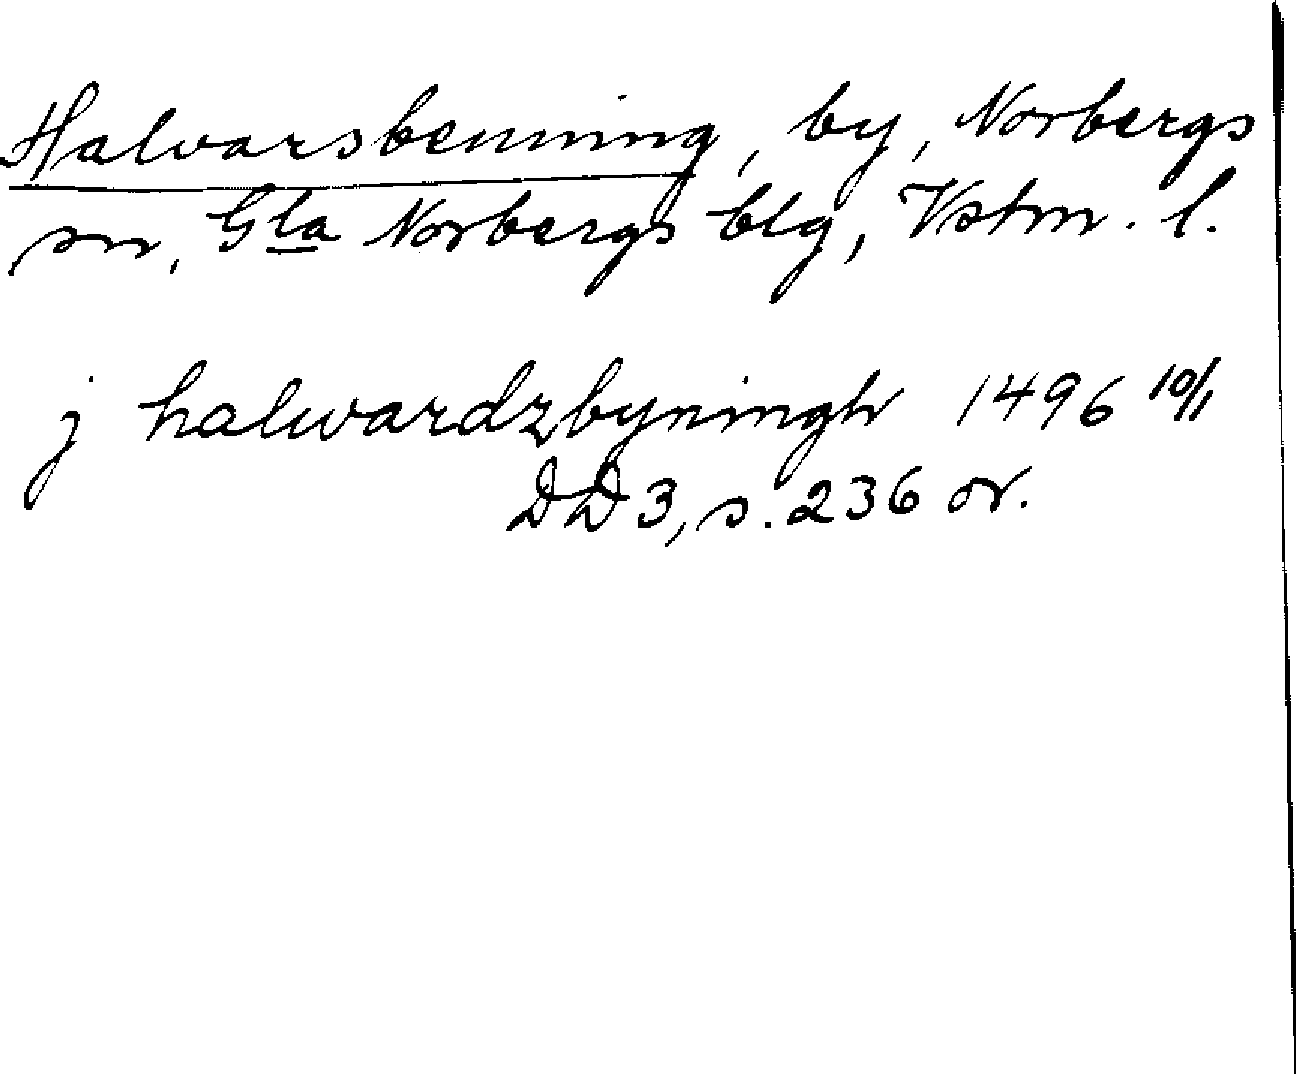 Halvarsbenning, by, Norbergs
sn, Gla Norbergs blg, Vstm. l.
j halwardzbyningh 1496 10/1
DD 3, s. 236 or.